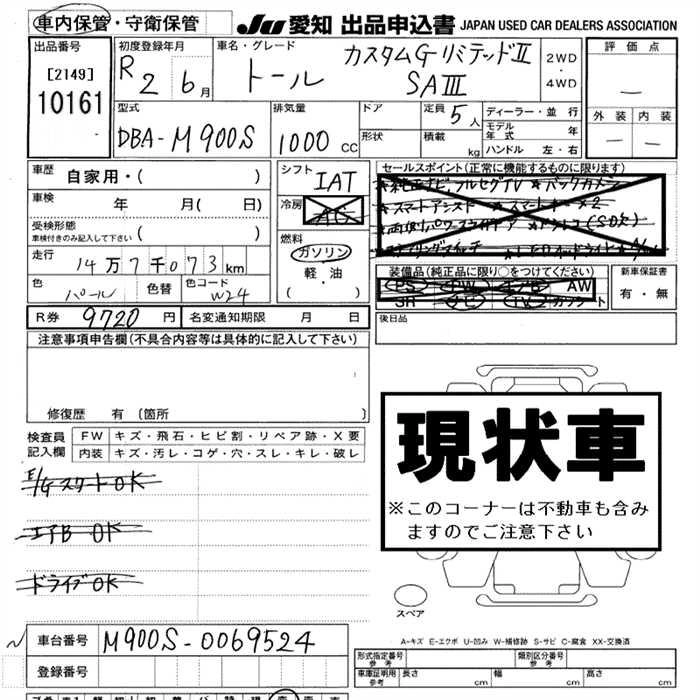 車内保管・守衛保管
JU 愛知 出品申込書 JAPAN USED CAR DEALERS ASSOCIATION
出品番号
[2149]
10161
初度登録年月
R 2 6月
車名・グレード
トール
カスタムGリミテッドII
SAIII
2WD
・
4WD
評価点
—
外装 内装
— —
型式
DBA-M900S
排気量
1000 cc
ドア
形状
定員 5人
積載 kg
ディーラー・並行
モデル年式 年
ハンドル 左・右
車歴 自家用・( )
車検 年 月( 日)
受検形態
車検付きのみ記入して下さい ( )
走行 14万7千073km
色 パール 色替 色コード W24
シフト IAT
冷房 AC
燃料
ガソリン
軽・油
( )
セールスポイント(正常に機能するものに限ります)
★純正ナビ,フルセグTV ★バックカメラ
★スマートアシスト ★スマートキー×2
★両側パワースライドドア
装備品(純正品に限り○をつけてください)
PS PW エアB AW
SR ナビ TV カワシート
新車保証書
有・無
R券 9720円 名変通知期限 月 日
後日品
注意事項申告欄(不具合内容等は具体的に記入して下さい)
修復歴 有 〔箇所
検査員記入欄
FW キズ・飛石・ヒビ割・リペア跡・X要
内装 キズ・汚レ・コゲ・穴・スレ・キレ・破レ
E/GスタートOK
エアB OK
ドライブOK
現状車
※このコーナーは不動車も含み
ますのでご注意下さい
スペア
A-キズ E-エクボ U-凹み W-補修跡 S-サビ C-腐食 XX-交換済
車台番号 M900S-0069524
登録番号
形式指定番号 参考
類別区分番号 参考
車庫証明用 参考 長さ cm 幅 cm 高さ cm